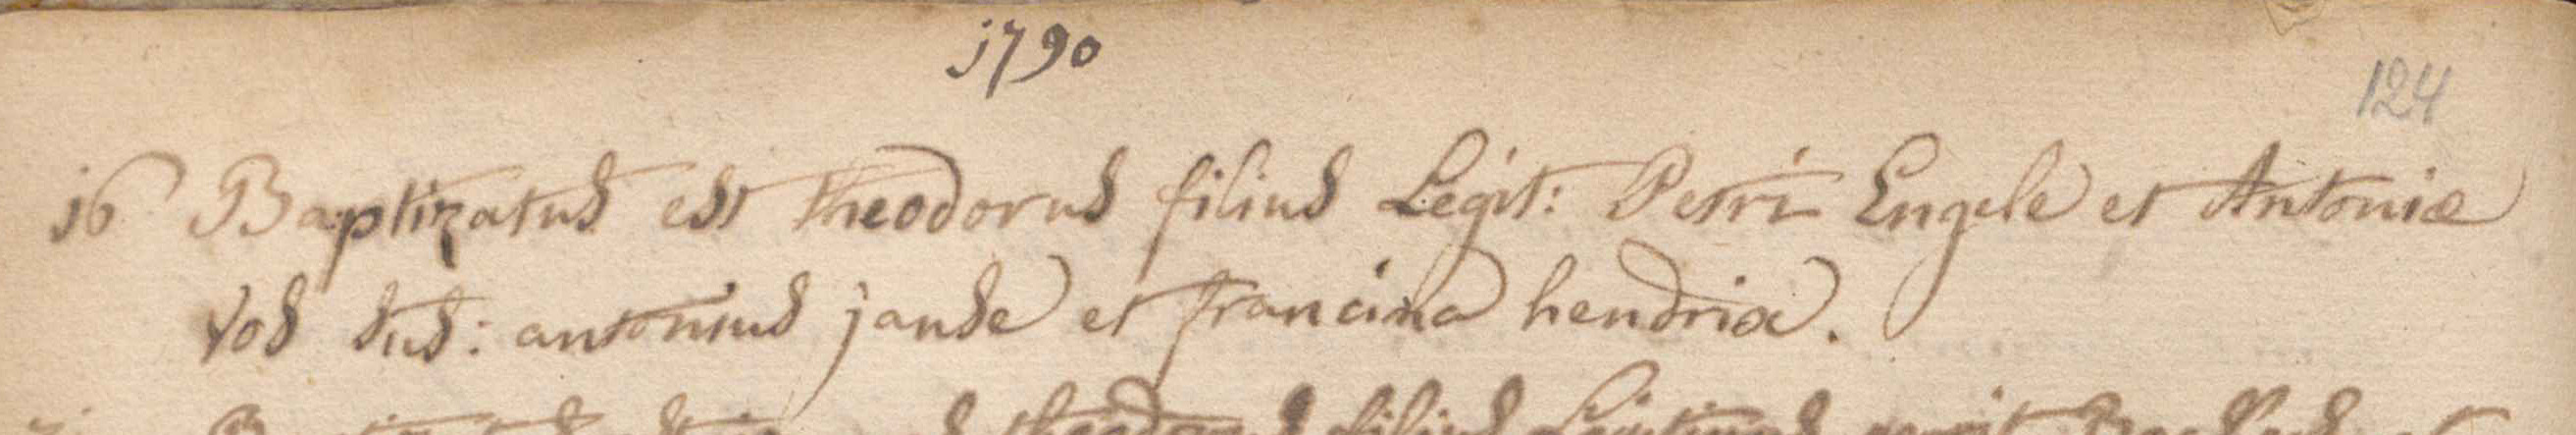 1790
124
16 Baptizatus est Theodorus filius Legit: Petri Engele et Antoniæ
Vos sus: antonius janse et francina hendrix.